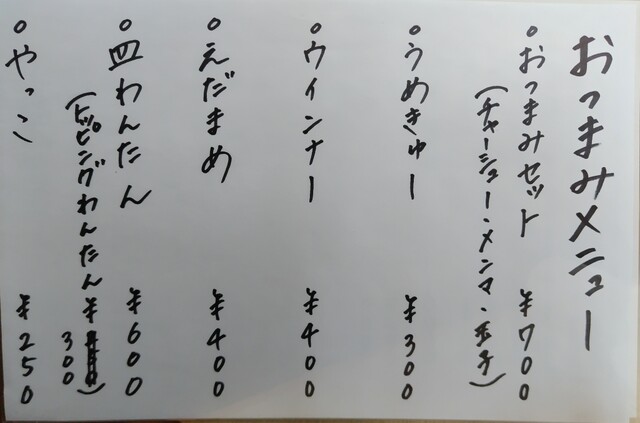 おつまみメニュー
○おつまみセット ¥700
(チャーシュー・メンマ・玉子)
○うめきゅー ¥300
○ウインナー ¥400
○えだまめ ¥400
○皿わんたん ¥600
(ピピングわんたん ¥300)
○やっこ ¥250